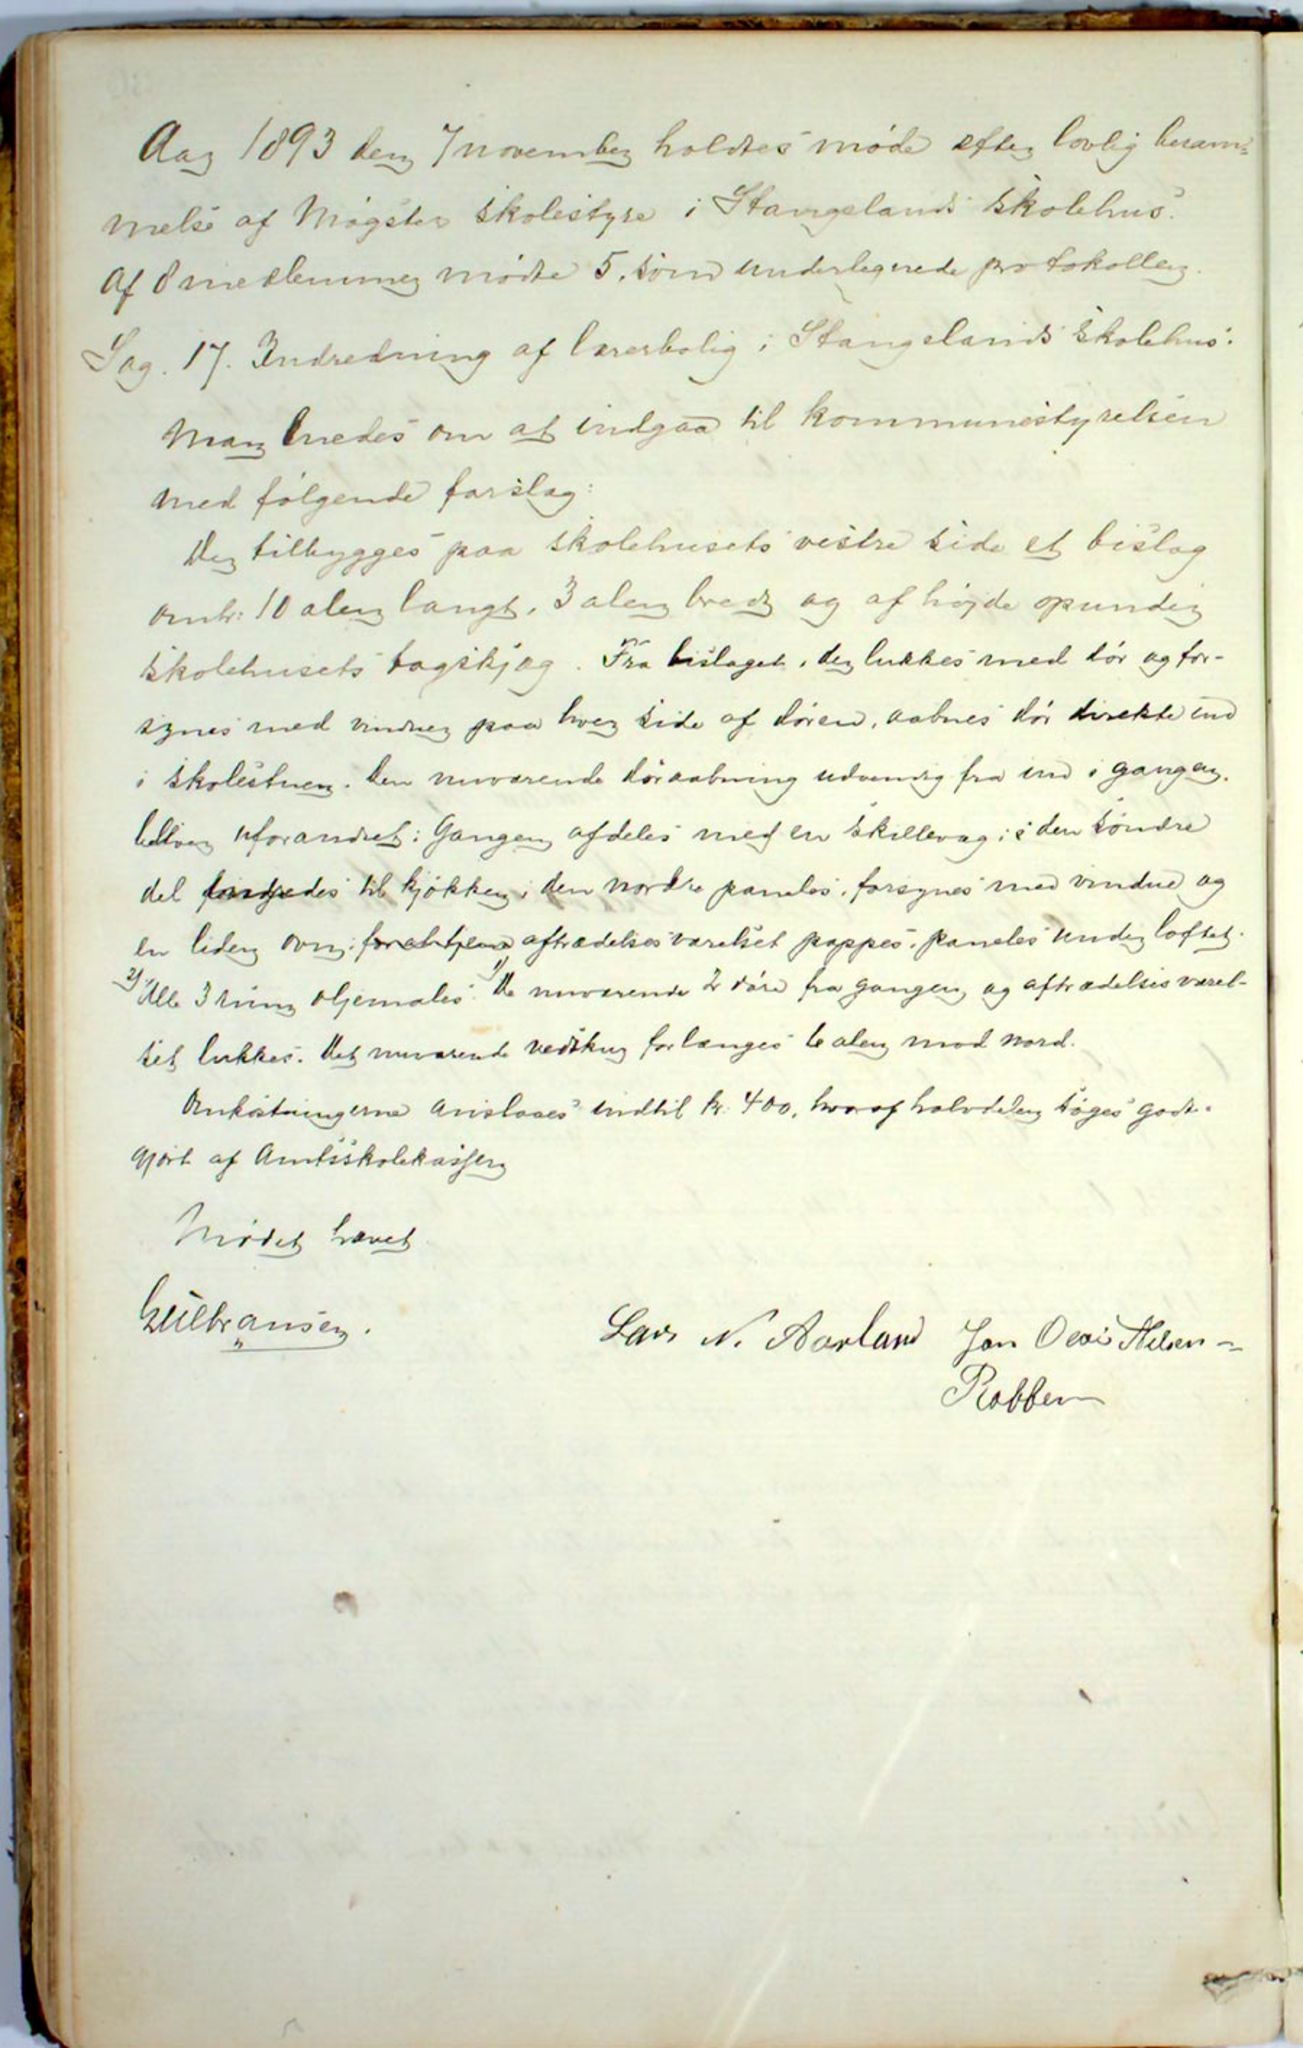 Aar 1893 den 7 november holdtes møde efter lovlig beram-
melse af Møgster skolestyre i Stangelands skolehus.
Af 8 medlemmer mødte 5, som underlegnede protokollen.
Sag. 17. Indredning af lærerbolig i Stangelands skolehus.
Man enedes om at indgaa til kommunestyrelsen
med følgende forslag:
Der tilbygges paa skolehusets vestre side et bislag
omtr: 10 alen langt, 3 alen bredt og af højde opunder
skolehusets tagskjæg. Fra bislaget, der lukkes med dør og for-
synes med vinduer paa hver side af døren, aabnes dør direkte ind
i skolestuen. Den nuværende døraabning udvendig fra ind i gangen
bliver uforandret: Gangen afdeles med en skillevæg; i den søndre
del indredes til kjøkken; den nordre paneles, forsynes med vindue og
en liden ovn; aftrædelsesværelset pappes, paneles under loftet.
2) Alle 3 rum oljemales. 1) De nuværende 2 døre fra gangen og aftrædelsesværel-
set lukkes. Det nuværende vedskur forlænges 6 alen mod nord.
Omkostningerne anslaaes indtil kr. 400, hvoraf halvdelen søges godt-
gjort af Amtsskolekassen
Mødet hævet
Gulbransen.
Lars N. Aarland Jan Nilsen
Robben